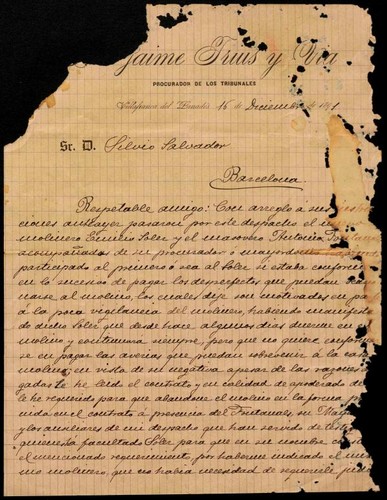 Jaime Trius y Vía
PROCURADOR DE LOS TRIBUNALES
Villafranca del Panadés 16 de Diciembre de 1891
Sr. D. Silvio Salvador
Barcelona
Respetable amigo: Con arreglo á sus
ciones anteayer pasaron por este despacho el
molinero Emilio Soler y el masovero Antonio
acompañados de su procurador ó mayordomo
participado al primero ó sea al Soler si estaba conforme
en lo sucesivo de pagar los desperfectos que puedan
narse al molino, los cuales dije son motivados en pa
á la poca vigilancia del molinero, habiendo manifesta
do dicho Soler que desde hace algunos dias duerme en
molino y continuará siempre, pero que no quiere conforma
se en pagar las averias que puedan sobrevenir á la
molino; en vista de su negativa apesar de las razones
gadas le he leido el contrato y en calidad de apoderado de
le he requerido para que abandone el molino en la forma
nida en el contrato á presencia del Fontanals, su
y los auxiliares de mi despacho que han servido de
quienes ha facultado Soler para que en su nombre
el mencionado requerimiento, por haberme indicado el
mo molinero, que no habia necesidad de requerirle